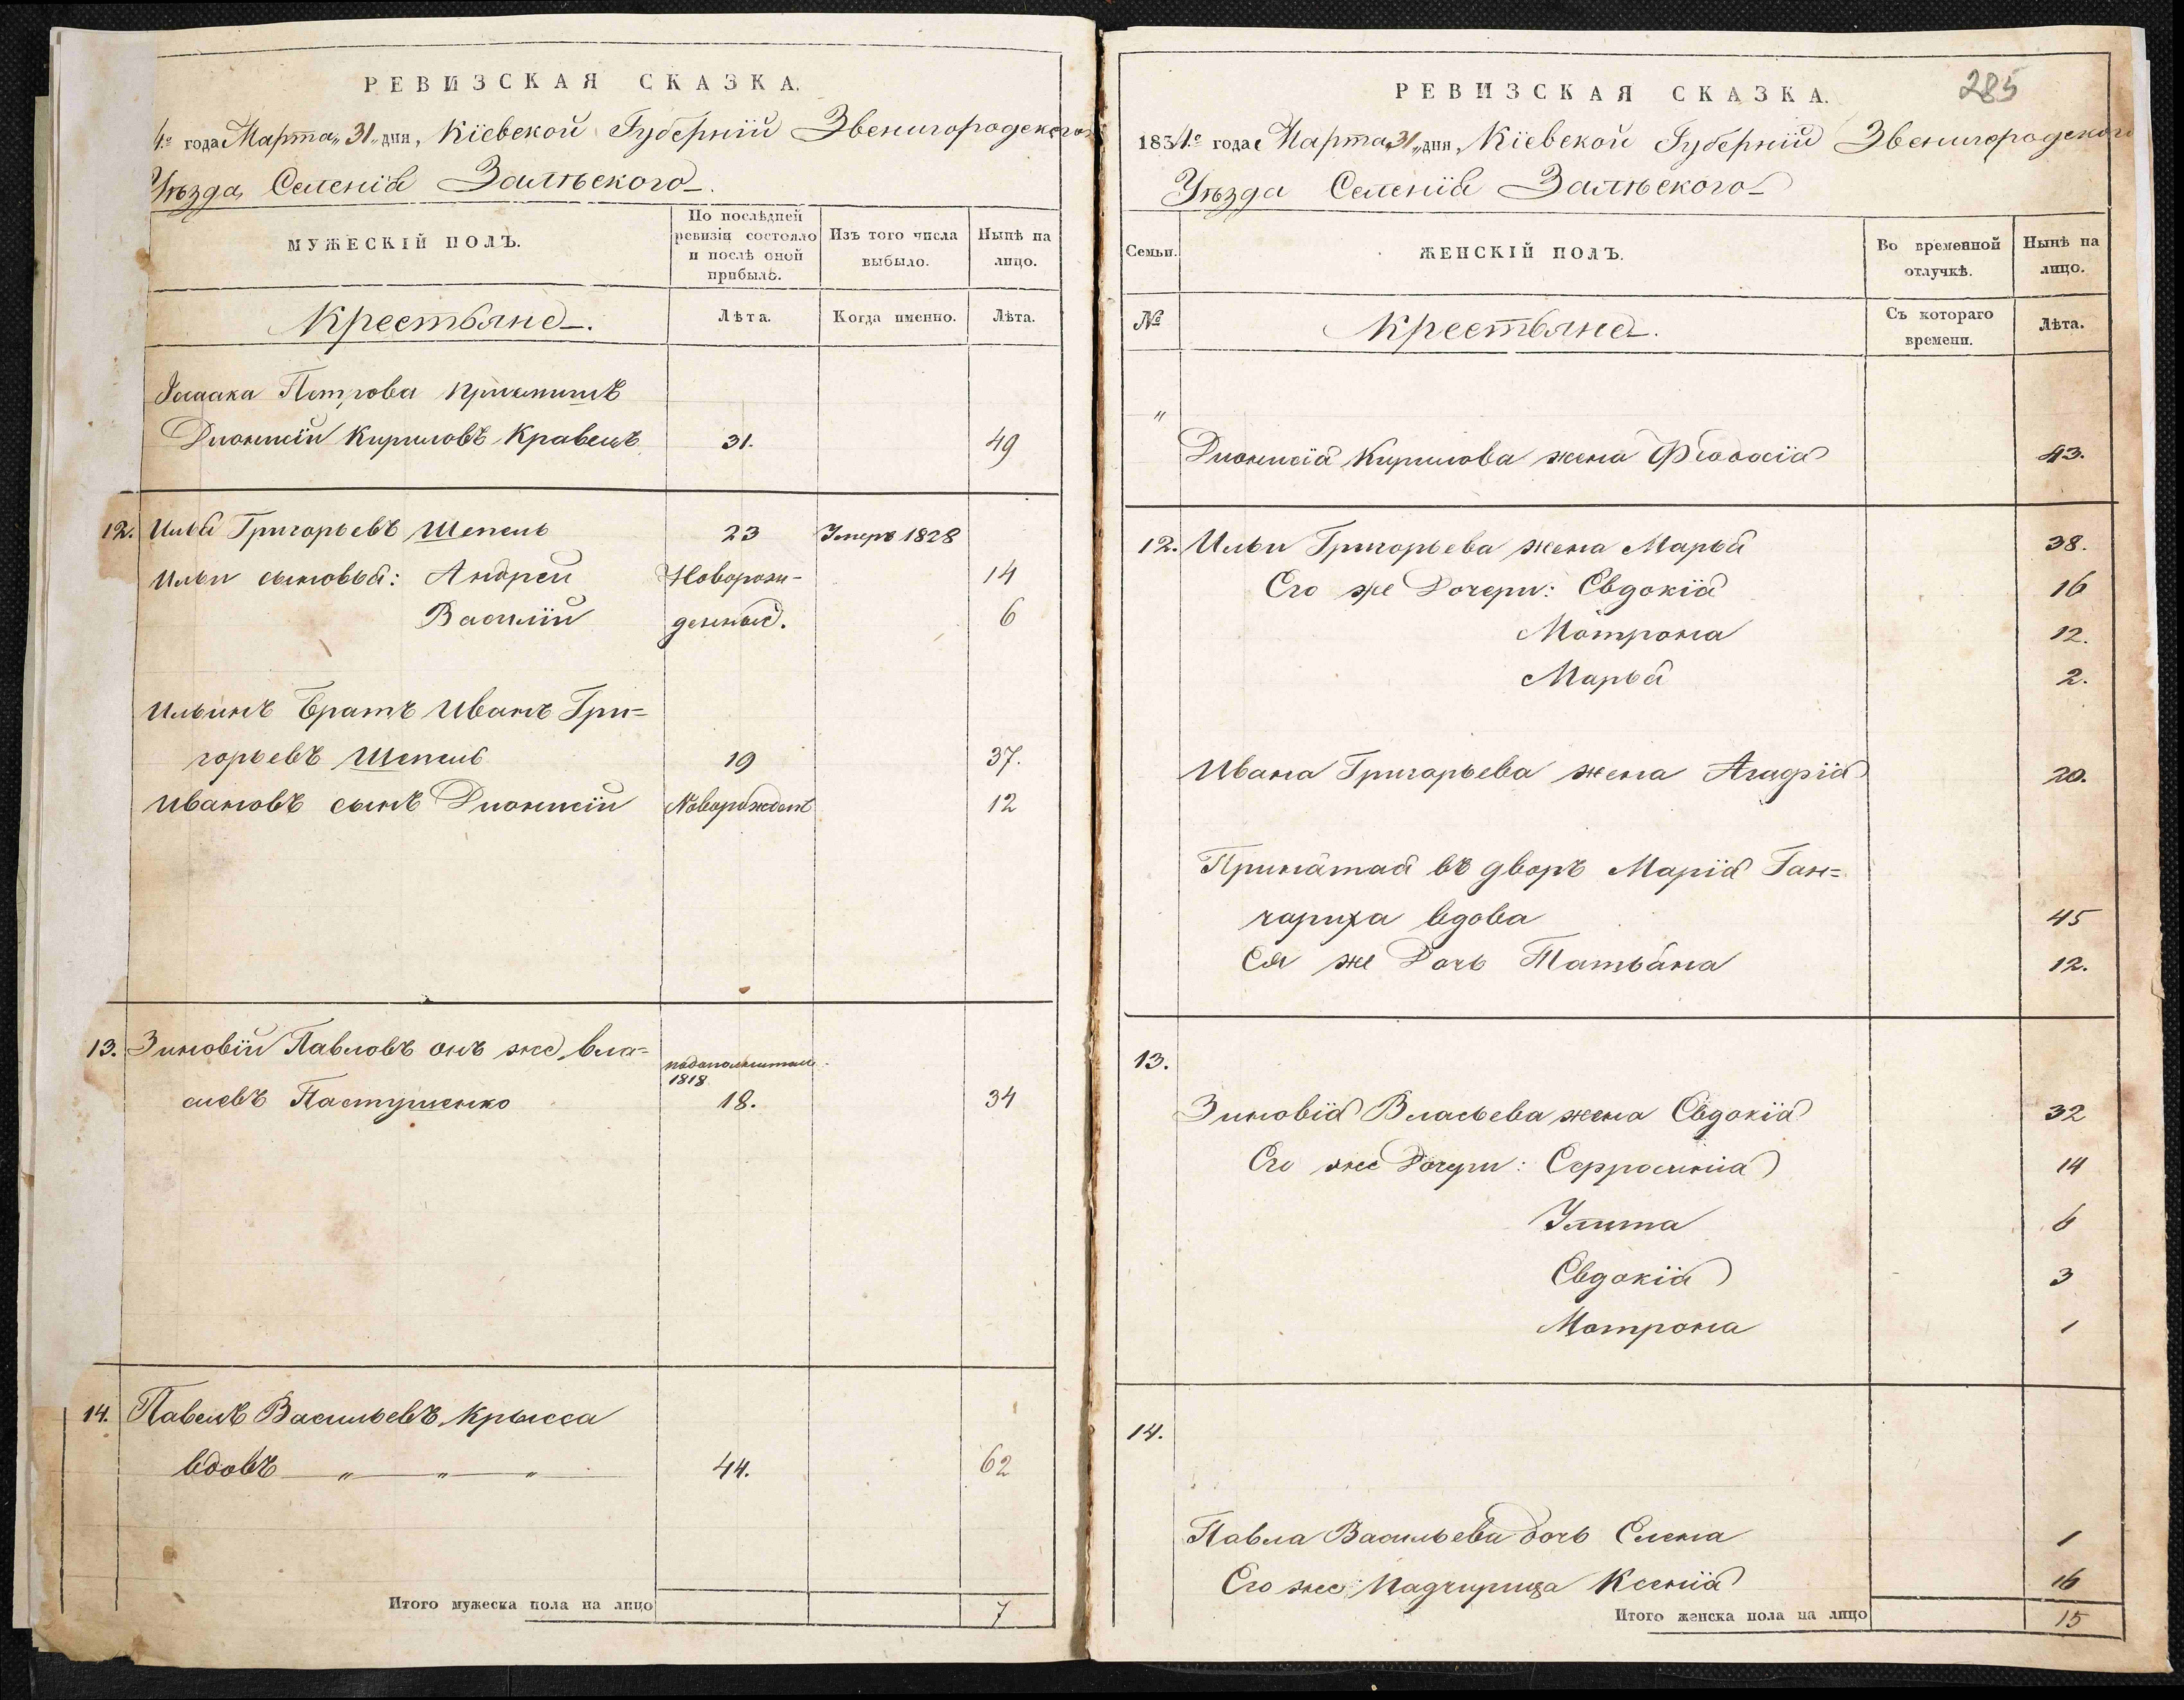 РЕВИЗСКАЯ СКАЗКА.
4го года Марта „31„ дня, Кіевской Губерніи Звенигородскаго
Уѣзда Селенія Залѣсского
МУЖЕСКІЙ ПОЛЪ.
По послѣдней ревизіи состояло и послѣ оной прибыло.
Изъ того числа выбыло.
Нынѣ на лицо.
Крестьяне.
Лѣта.
Когда именно.
Лѣта.
Исаака Петрова приемышъ
Дионисій Кириловъ Кравецъ 31. 49
12. Илья Григорьевъ Шепель 23 Умеръ 1828
Ильи сыновья: Андрей Новорож- 14
Василій денные. 6
Ильинъ Братъ Иванъ Гри=
горьевъ Шепель 19 37.
Ивановъ сынъ Дионисій Новорожден 12
13. Зиновій Павловъ онъ же Вла=
1818
сиевъ Пастушенко 18. 34
14. Павелъ Васильевъ Крысса
вдовъ „ „ „ 44. 62
Итого мужеска пола на лицо 7
285
РЕВИЗСКАЯ СКАЗКА.
1834го года Марта „31„ дня, Кіевской Губерніи Звенигородского
Уѣзда Селенія Залѣсского
Семьи.
ЖЕНСКІЙ ПОЛЪ.
Во временной отлучкѣ.
Нынѣ на лицо.
№
Крестьяне.
Съ котораго времени.
Лѣта.
„
Дионисія Кирилова жена Феодосія 43.
12. Ильи Григорьева жена Марья 38.
Его же Дочери: Евдокія 16
Мотрона 12.
Марья 2.
Ивана Григорьева жена Агафія 20.
Принятая въ дворъ Марія Ган=
чариха вдова 45
Ея же Дочь Татьяна 12.
13.
Зиновія Власьева жена Евдокія 32
Его же Дочери: Ефросинія 14
Улита 6
Евдокія 3
Мотрона 1
14.
Павла Васильева дочь Елена 1
Его же Падчирица Ксенія 16
Итого женска пола на лицо 15